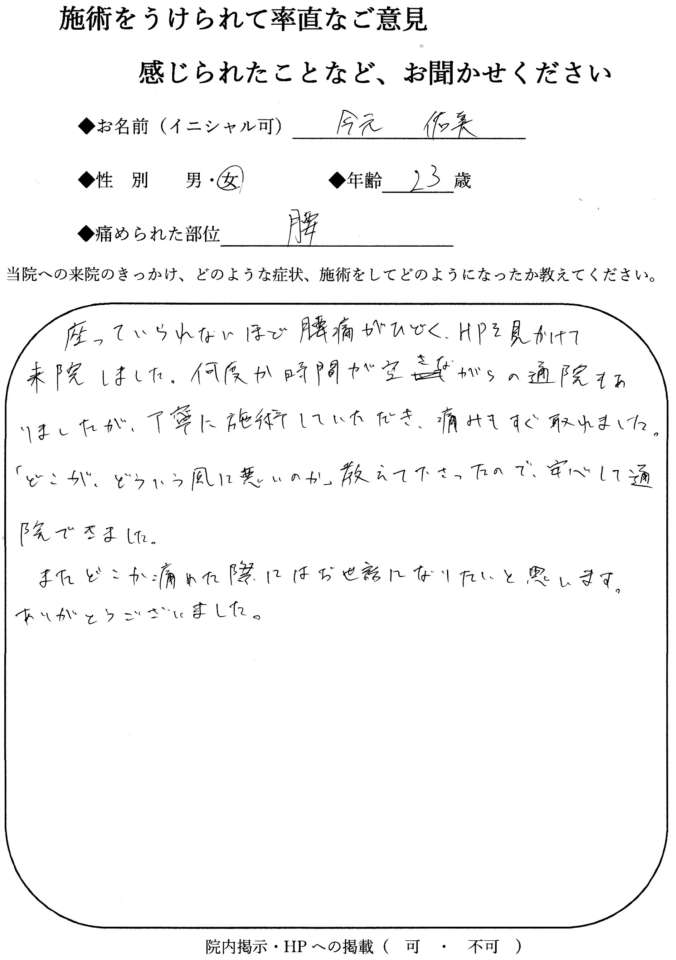 施術をうけられて率直なご意見
感じられたことなど、お聞かせください
◆お名前（イニシャル可） 今元 佑美
◆性 別 男・女 ◆年齢 23 歳
◆痛められた部位 腰
当院への来院のきっかけ、どのような症状、施術をしてどのようになったか教えてください。
座っていられないほど腰痛がひどく、HPを見かけて
来院しました。何度か時間が空きながらの通院もあ
りましたが、丁寧に施術していただき、痛みもすぐ取れました。
「どこが、どういう風に悪いのか」教えて下さったので、安心して通
院できました。
またどこか痛めた際にはお世話になりたいと思います。
ありがとうございました。
院内掲示・HPへの掲載（ 可 ・ 不可 ）